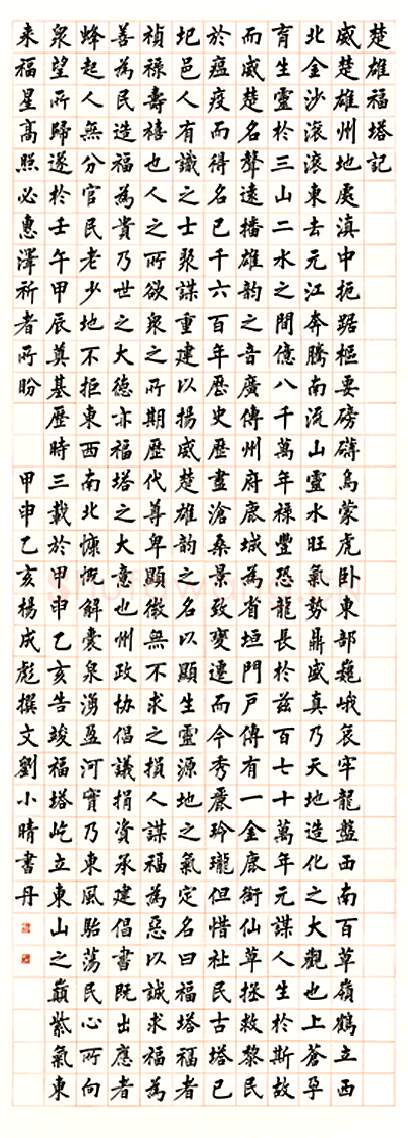 楚雄福塔記
威楚雄州地處滇中扼踞樞要磅礴烏蒙虎卧東部巍峨哀牢龍盤西南百草嶺鶴立西
北金沙滚滚東去元江奔騰南流山靈水旺氣勢鼎盛真乃天地造化之大觀也上蒼孕
育生靈於三山二水之間億八千萬年禄豐恐龍長於兹百七十萬年元謀人生於斯故
而威楚名聲遠播雄韵之音廣傳州府鹿城為省垣門户傳有一金鹿銜仙草拯救黎民
於瘟疫而得名已千六百年歷史歷盡滄桑景致變遷而今秀麗玲瓏但惜社民古塔已
圮邑人有識之士聚謀重建以揚威楚雄韵之名以顯生靈源地之氣定名曰福塔福者
禎禄壽禧也人之所欲衆之所期歷代尊卑顯微無不求之損人謀福為惡以誠求福為
善為民造福為貴乃世之大德亦福塔之大意也州政协倡議捐資承建倡書既出應者
蜂起人無分官民老少地不拒東西南北慷慨解囊泉湧盈河實乃東風駘蕩民心所向
衆望所歸遂於壬午甲辰奠基歷時三載於甲申乙亥告竣福塔屹立東山之巔紫氣東
来福星高照必惠澤祈者所盼 甲申乙亥楊成彪撰文劉小晴書丹